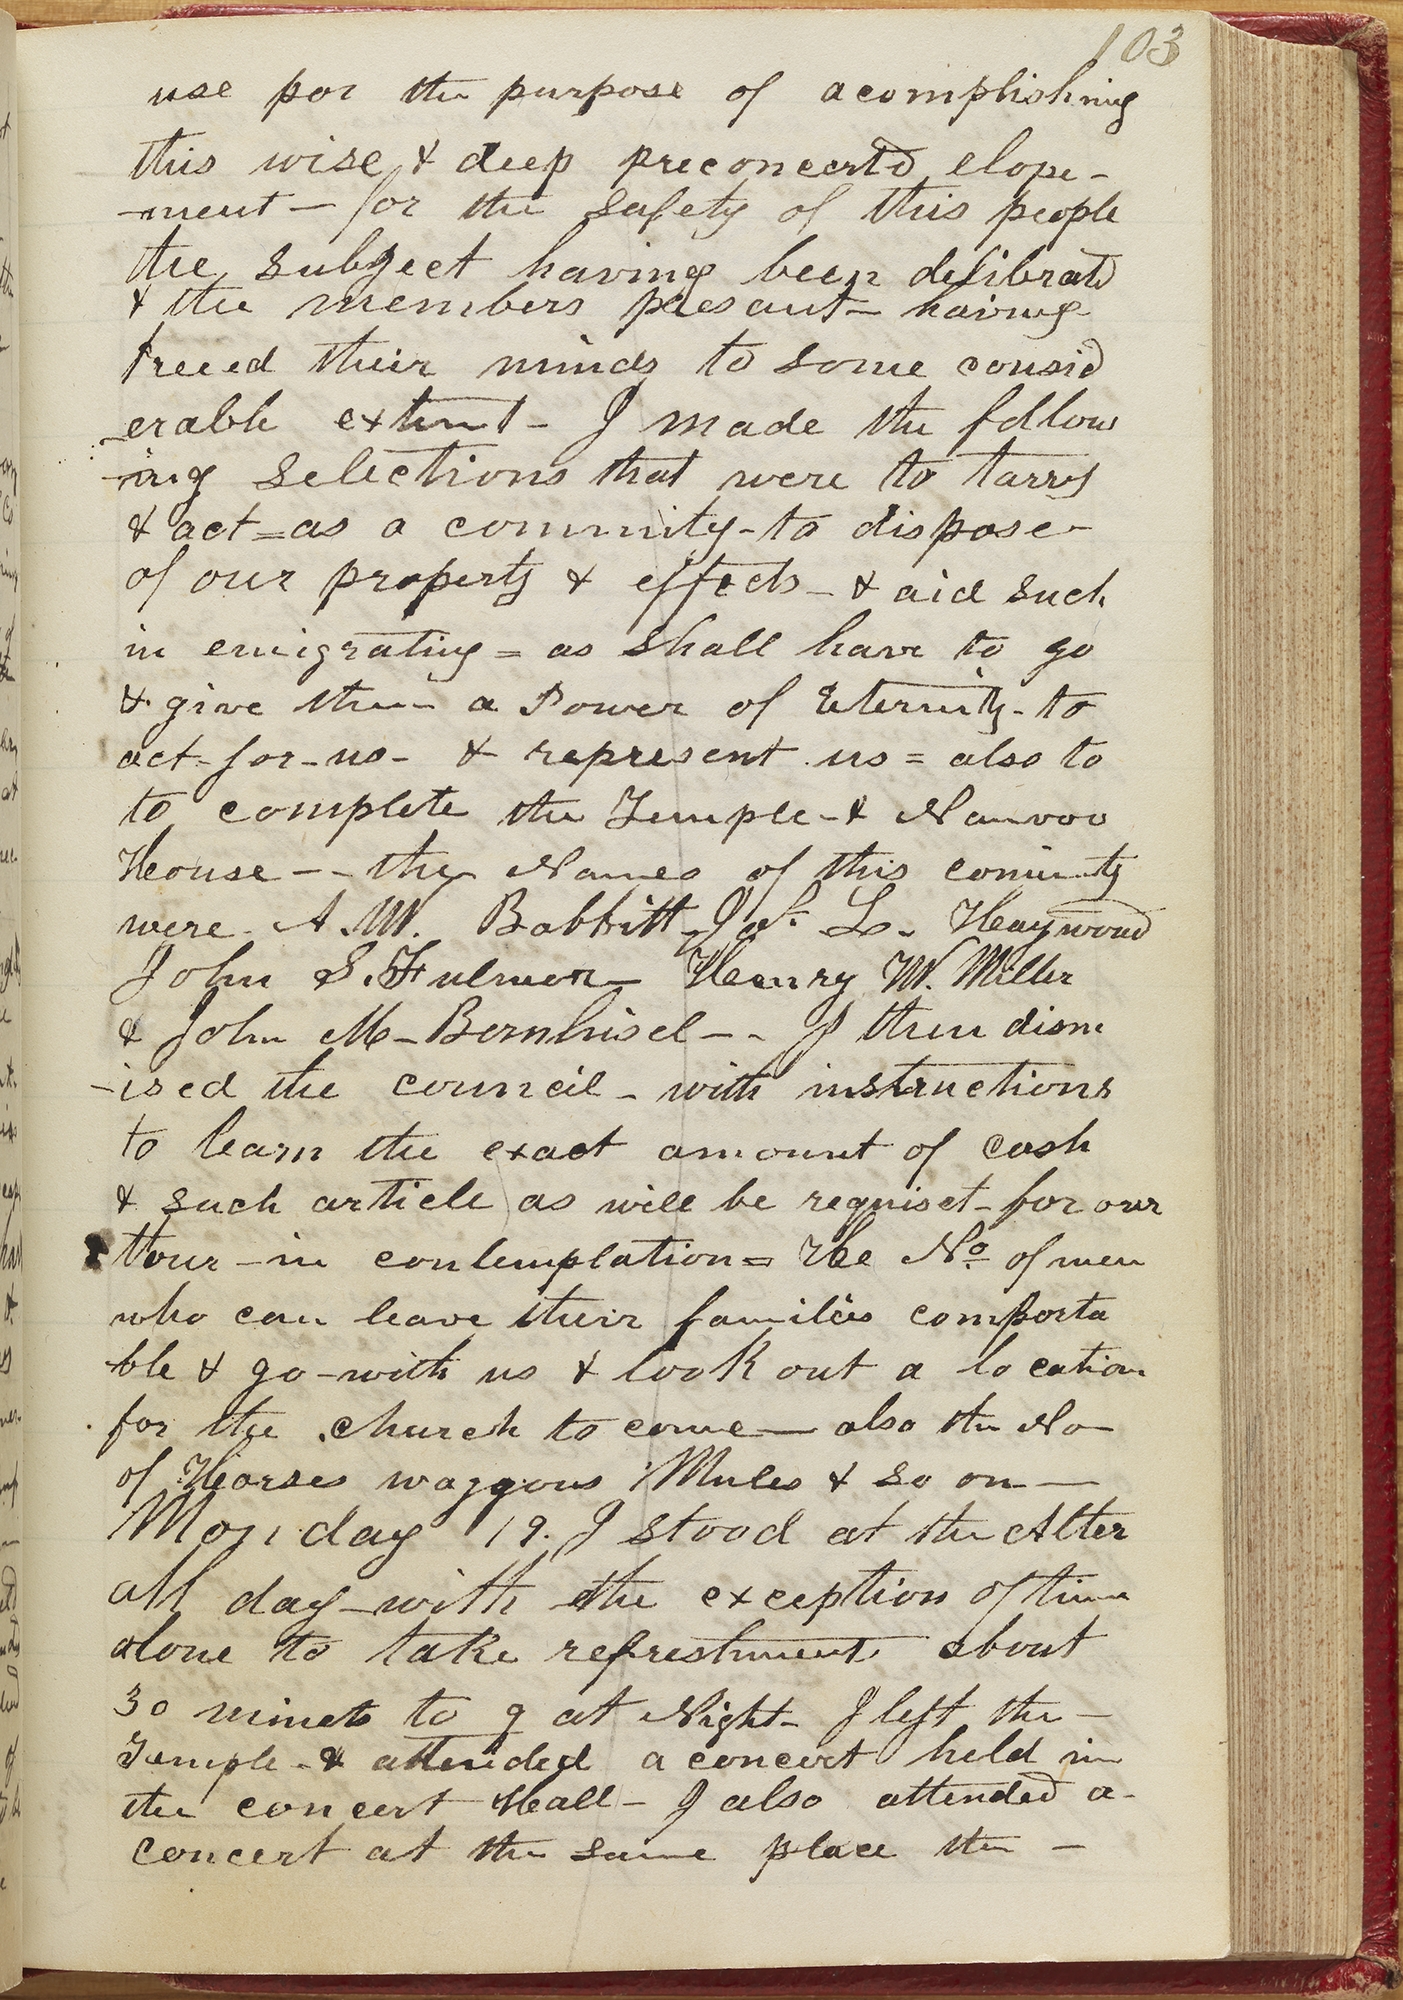 103
use por the purpose of acomplishing
this wise & deep preconcertd elope-
-ment - for the safety of this people
the subject having been delibratd
& the members presant - having
freeed their minds to some consid
erable extent - I made the follow
-ing selections that were to tarry
& act = as a commity - to dispose -
of our property & effects - & aid such
in emigrating = as shall have to go
& give them a Power of Eternity - to
act - for - us - & represent us = also to
to complete the Temple - & Nauvoo
House - - the Names of this comimty
were A. W. Babbitt - Jos. L. Heaywood
John S. Fulmer - Henry W. Miller
& John M - Bernhisel - - I then dism
-ised the council - with instructions
to learn the exact amount of cash
& such article as will be requiset - for our
tour - in contemplation = The No. of men
who can leave their families comporta
ble & go - with us & look out a location
for the church to come - also the No -
of Horses waggons Mules & so on -
Monday 19. I stood at the Alter
all day - with the exception of time
alone to take refreshment about
30 minets to 9 at Night - I left the -
Temple - & attended a concert held in
the concert Hall - I also attended a -
concert at the same place the -